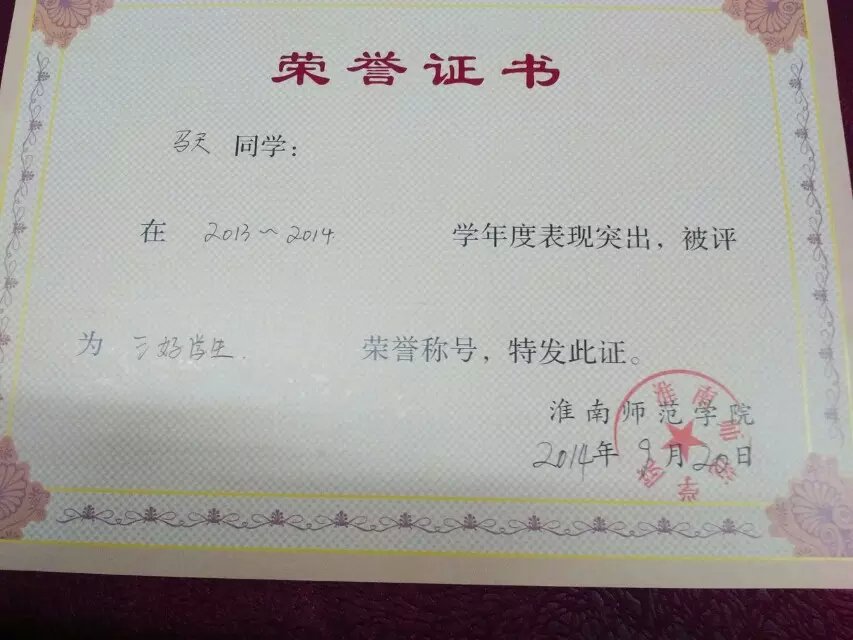 荣誉证书
马天 同学：
在 2013～2014 学年度表现突出，被评
为 三好学生 荣誉称号，特发此证。
淮南师范学院
2014年9月20日
淮南师范学院